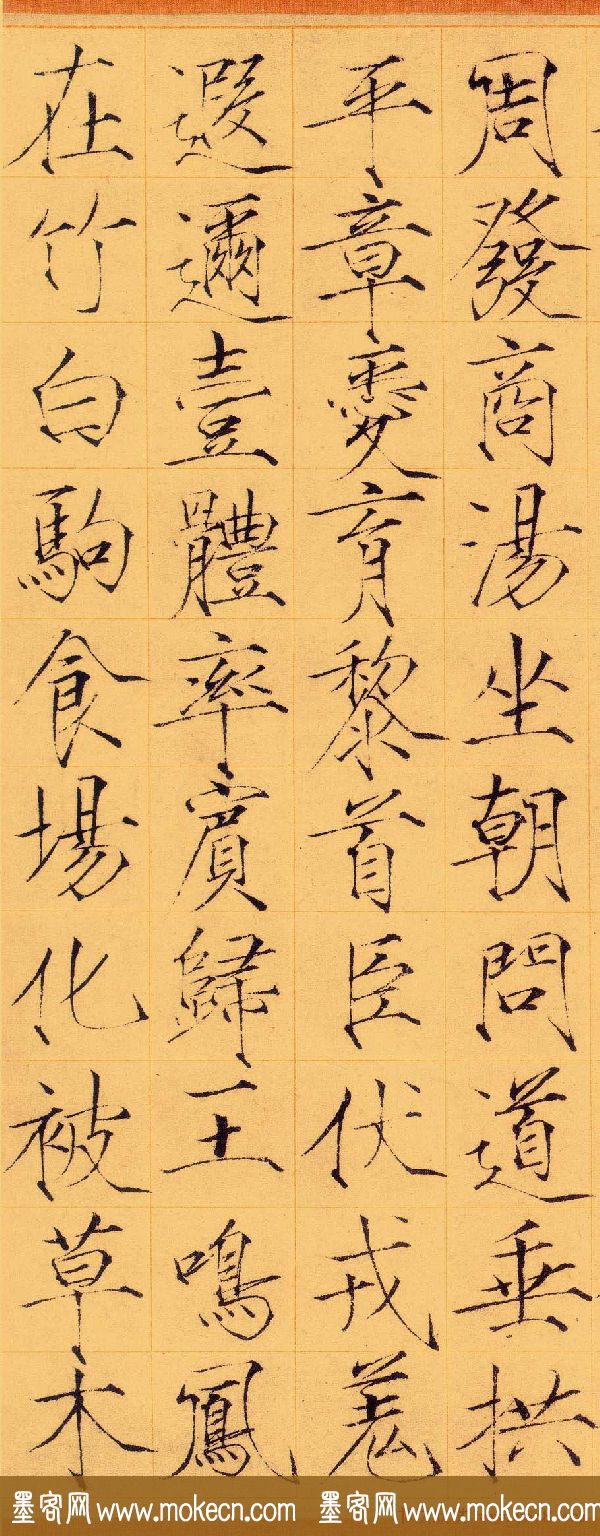 周發商湯坐朝問道垂拱
平章愛育黎首臣伏戎羌
遐邇壹體率賓歸王鳴鳳
在竹白駒食場化被草木
墨客网 www.mokecn.com 墨客网 www.mokecn.com